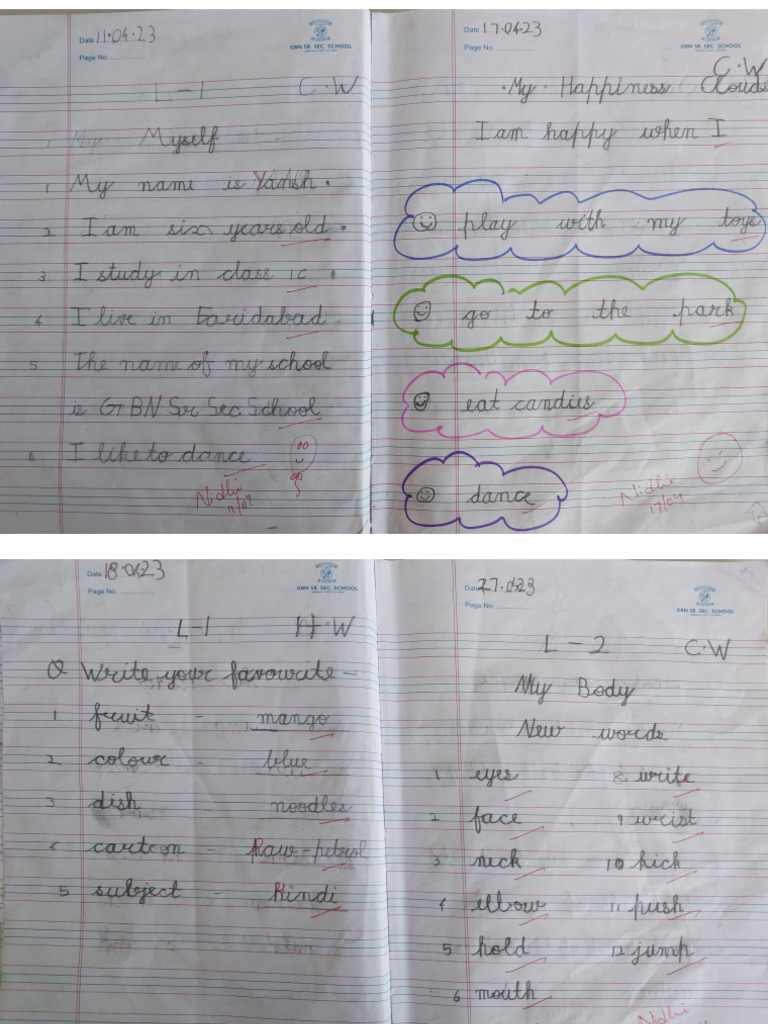 Date 11.04.23
GBN SR. SEC. SCHOOL
Page No.
L-1 C.W
Myself
1 My name is Vansh.
2 I am six years old.
3 I study in class 1C.
4 I live in Faridabad
5 The name of my school
is GBN Sr Sec School
6 I like to dance
Nidhi
11/04
Date 17.04.23
GBN SR. SEC. SCHOOL
Page No.
C.W
My Happiness Clouds
I am happy when I
play with my toys
go to the park
eat candies
dance
Nidhi
17/04
Date 18.04.23
GBN SR. SEC. SCHOOL
Page No.
L-1 H.W
Q Write your favourite-
1 fruit - mango
2 colour - blue
3 dish - noodles
4 cartoon - Paw-petrol
5 subject - Hindi
Date 27.04.23
GBN SR. SEC. SCHOOL
Page No.
L-2 C.W
My Body
New words
1 eyes 8. write
2 face 9 wrist
3 neck 10 kick
4 elbow 11 push
5 hold 12 jump
6 mouth
Nidhi